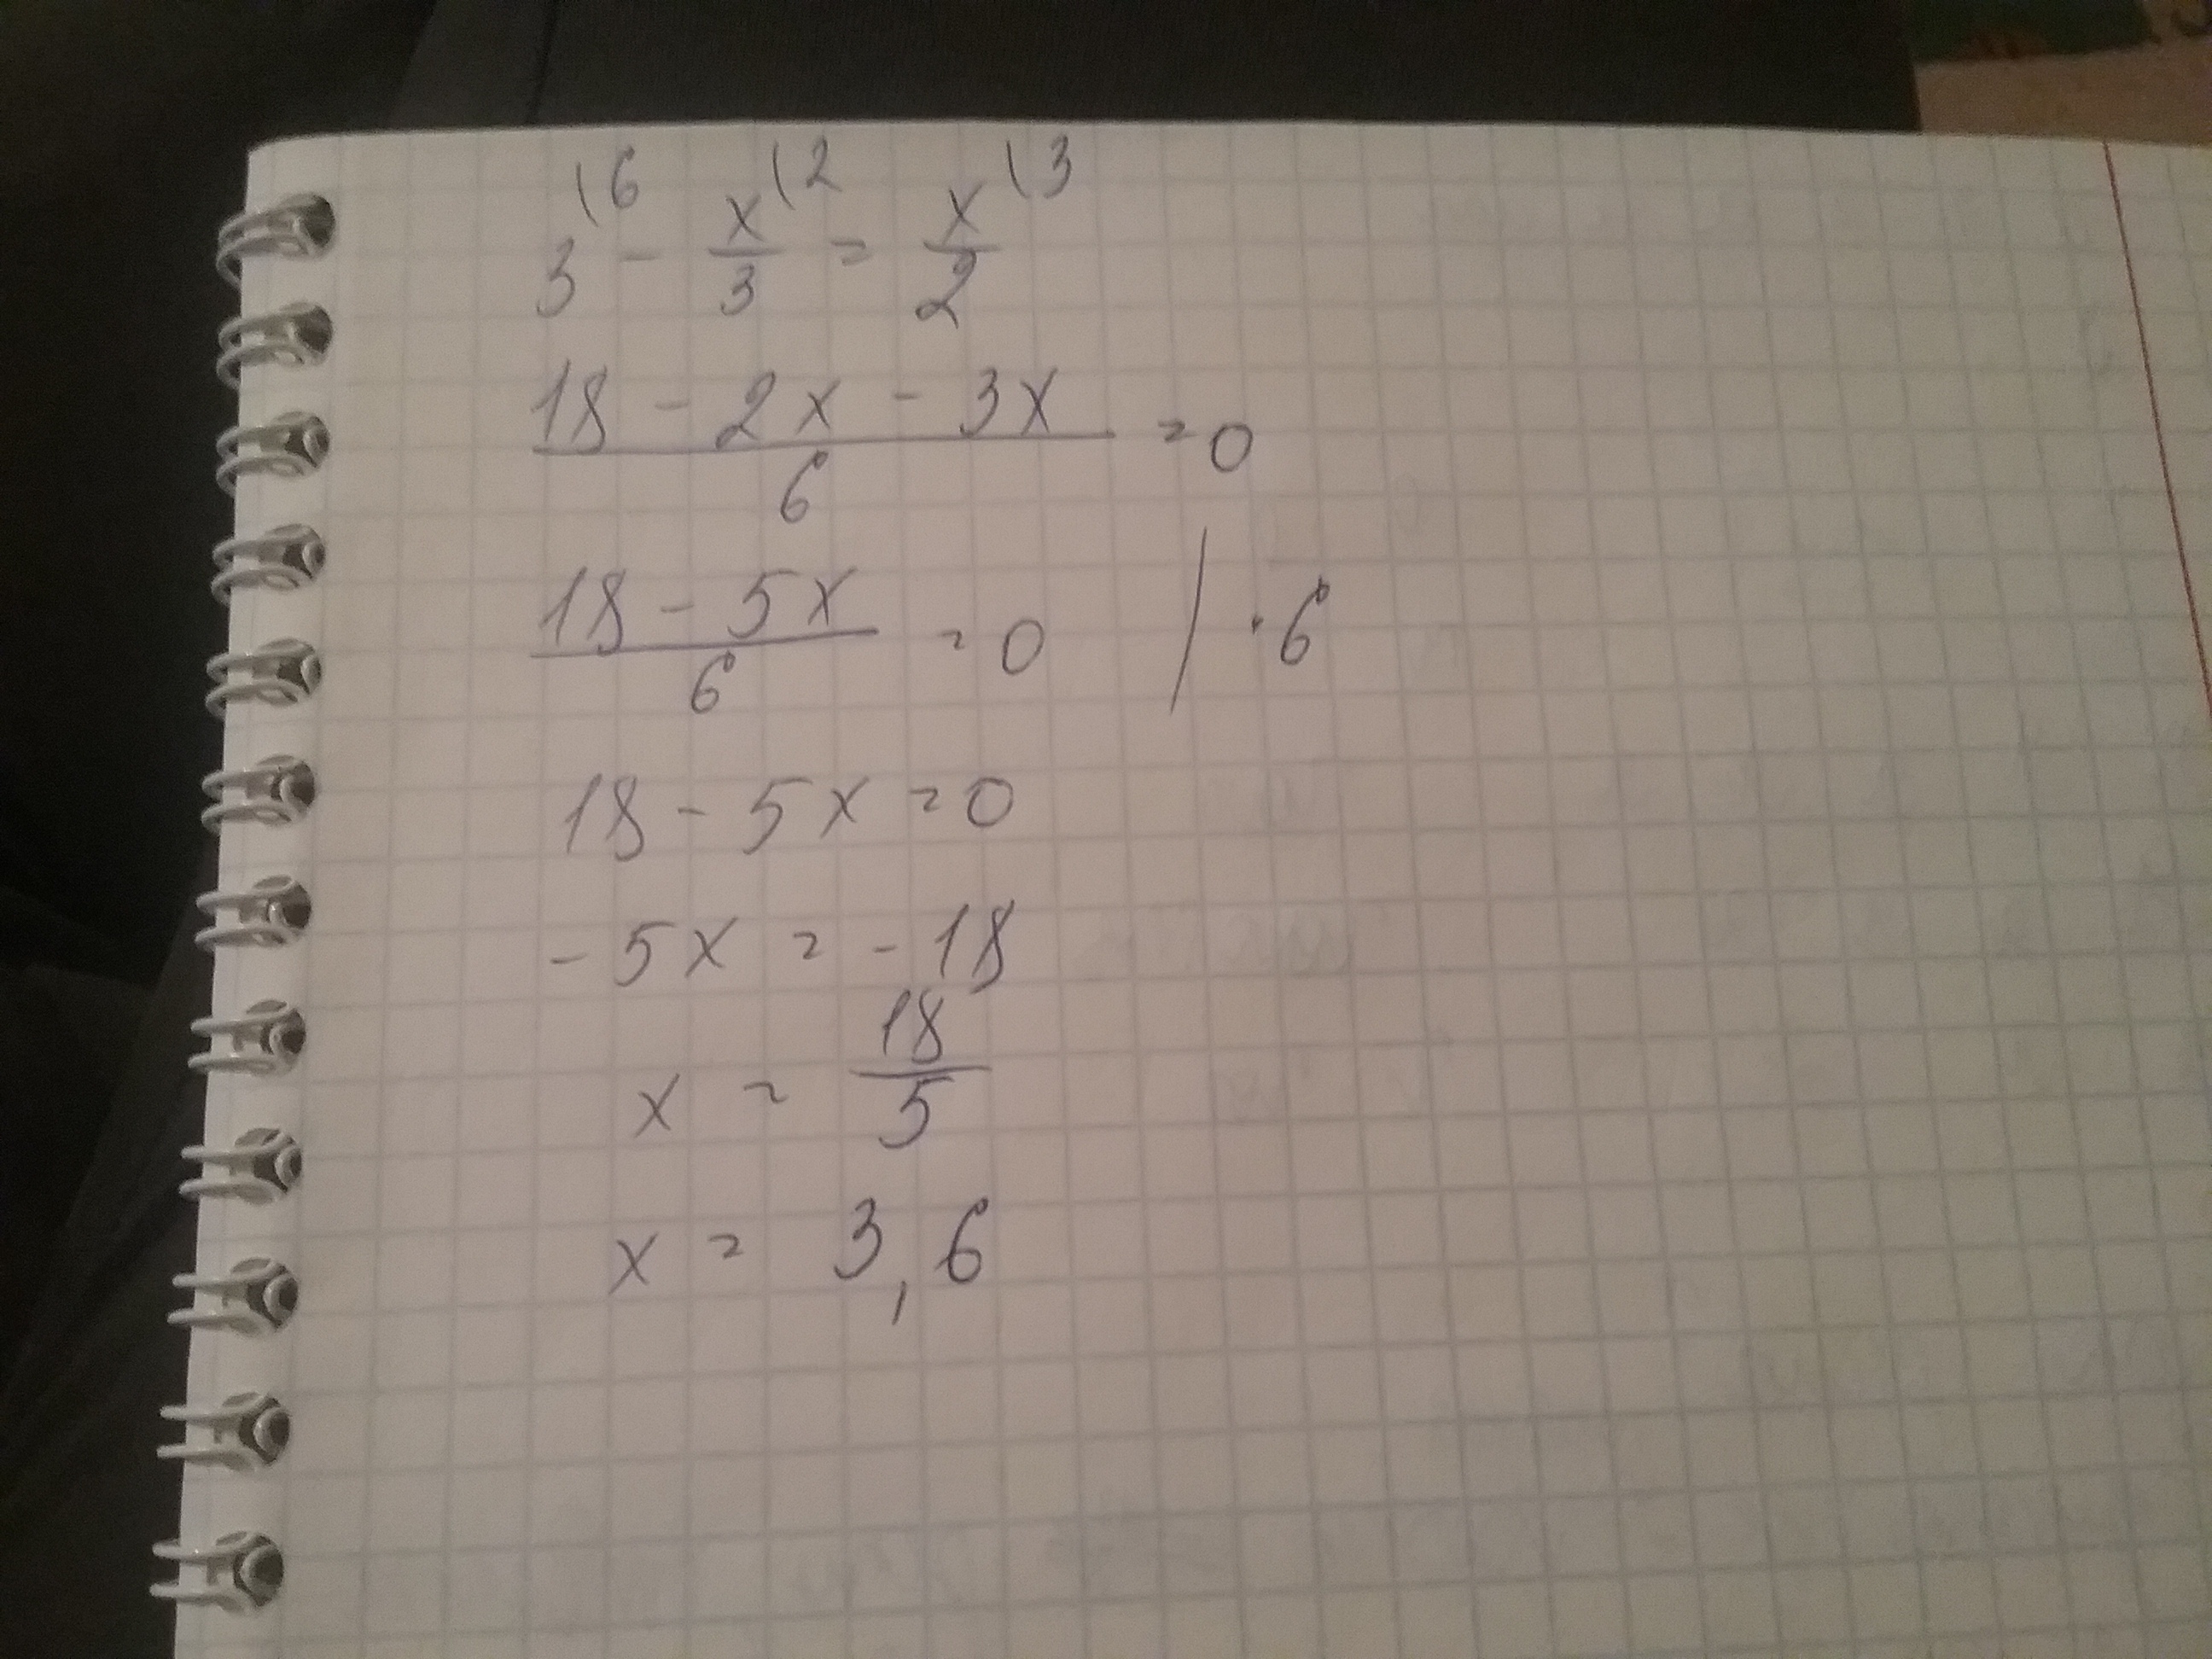 3\6 - x/3\2 = x/2\3
(18 - 2x - 3x)/6 = 0
(18 - 5x)/6 = 0 | · 6
18 - 5x = 0
- 5x = - 18
x = 18/5
x = 3,6